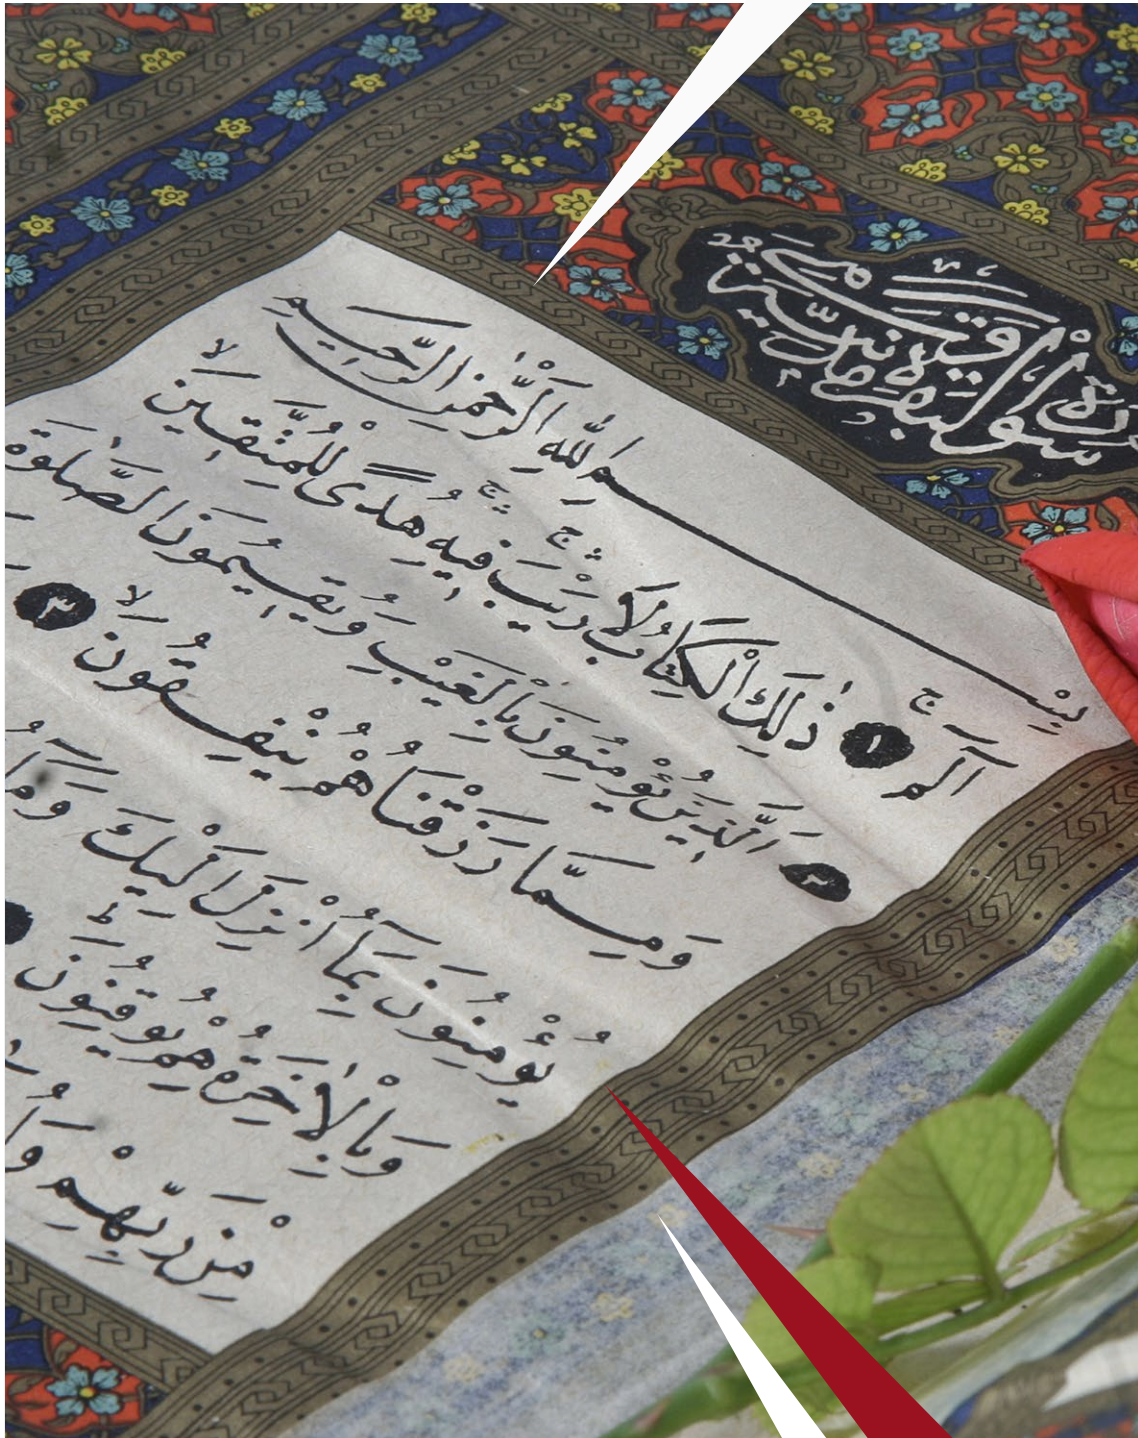 سورة البقرة
بِسْمِ اللّٰهِ الرَّحْمٰنِ الرَّحِيمِ
الٓمٓ ۚ ١ ذٰلِكَ الْكِتَابُ لَا رَيْبَ ۛ فِيهِ ۛ هُدًى لِلْمُتَّقِينَ ۙ
٢ اَلَّذِينَ يُؤْمِنُونَ بِالْغَيْبِ وَيُقِيمُونَ الصَّلٰوةَ
وَمِمَّا رَزَقْنَاهُمْ يُنْفِقُونَ ۙ ٣
يُؤْمِنُونَ بِمَٓا اُنْزِلَ اِلَيْكَ وَمَٓا
وَبِالْاٰخِرَةِ هُمْ يُوقِنُونَ ؕ
مِنْ رَبِّهِمْ